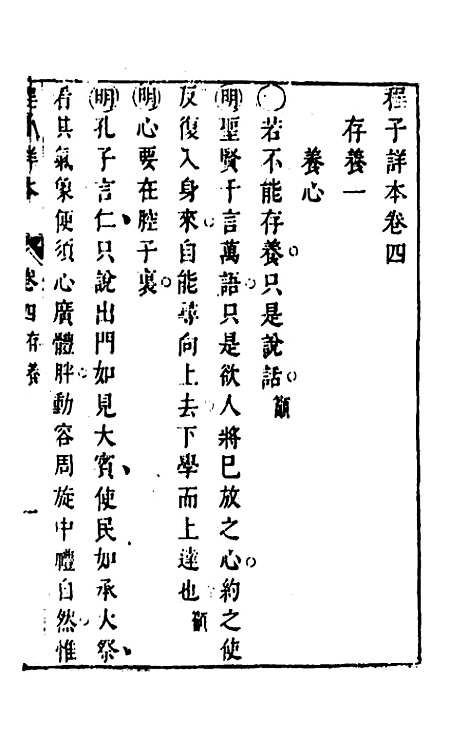 程子詳本卷四
存養一
養心
○若不能存養只是說話顥
明聖賢千言萬語只是欲人將已放之心約之使
反復入身來自能尋向上去下學而上達也顥
明心要在腔子裏
明孔子言仁只說出門如見大賓使民如承大祭
看其氣象便須心廣體胖動容周旋中禮自然惟
程子詳本 卷四存養 一